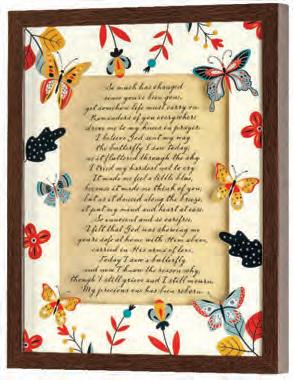 So much has changed
since you've been gone,
yet somehow life must carry on.
Reminders of you everywhere
drove me to my knees in prayer.
I believe God sent my way
the butterfly I saw today,
as it fluttered through the sky
I tried my hardest not to cry.
It made me feel a little blue,
because it made me think of you,
but as it danced along the breeze,
it put my mind and heart at ease.
So innocent and so carefree
I felt that God was showing me
you're safe at home with Him above,
carried in His arms of love.
Today I saw a butterfly
and now I know the reason why,
though I still grieve and I still mourn,
My precious one has been reborn.